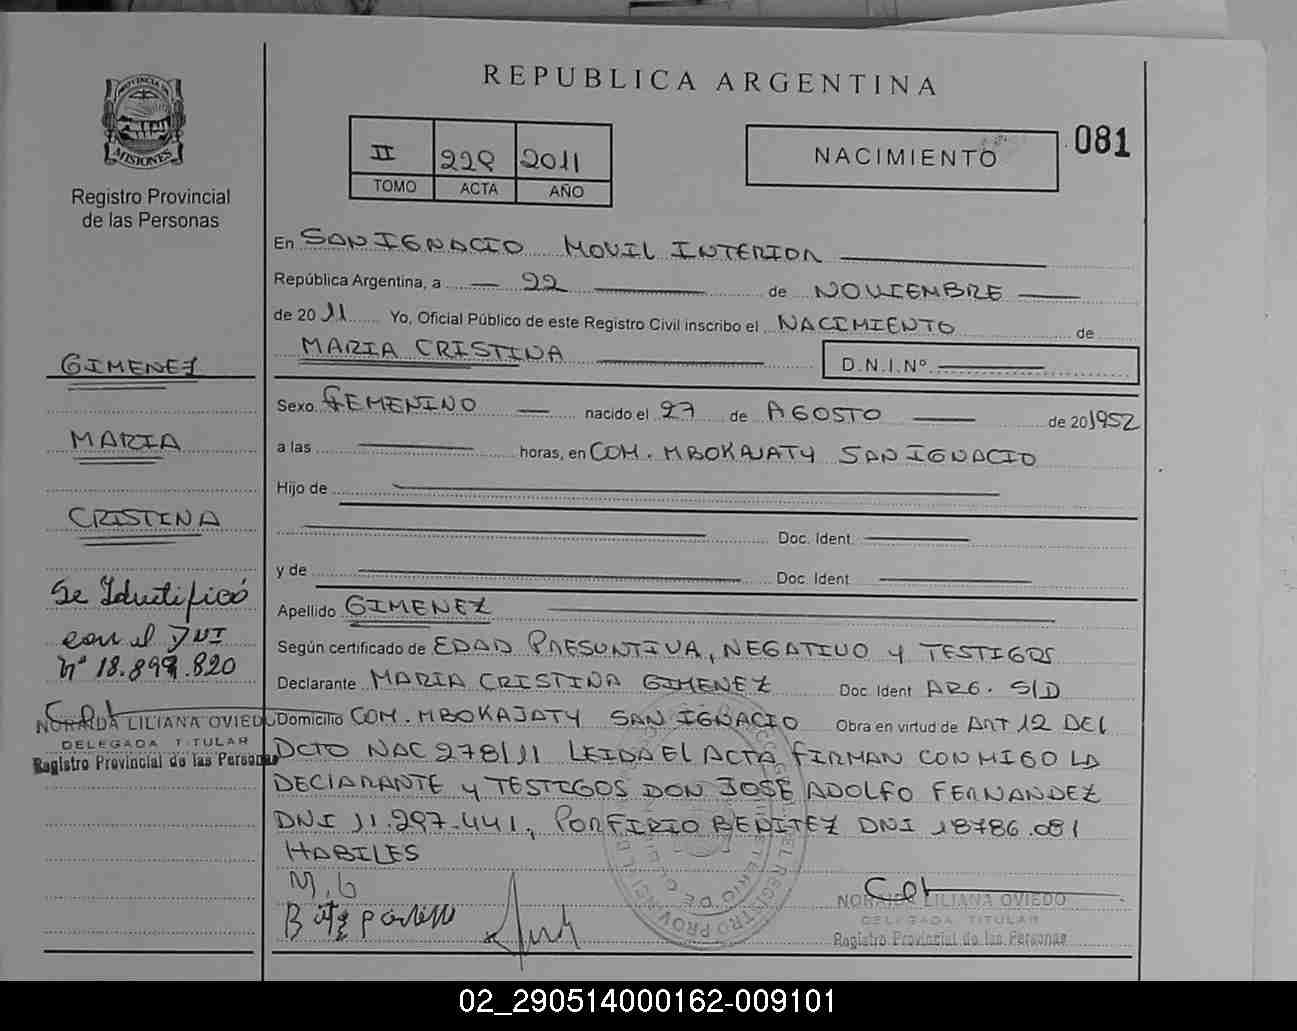 PROVINCIA DE
MISIONES
Registro Provincial
de las Personas
REPUBLICA ARGENTINA
II 229 2011
TOMO ACTA AÑO
NACIMIENTO
081
En SAN IGNACIO MOVIL INTERIOR
República Argentina, a 22 de NOVIEMBRE
de 20 11 Yo, Oficial Público de este Registro Civil inscribo el NACIMIENTO de
MARIA CRISTINA D.N.I.Nº
Sexo FEMENINO nacido el 27 de AGOSTO de 20 1952
a las horas, en COM. MBOKAJATY SAN IGNACIO
Hijo de
Doc. Ident.
y de Doc. Ident
Apellido GIMENEZ
Según certificado de EDAD PRESUNTIVA, NEGATIVO Y TESTIGOS
Declarante MARIA CRISTINA GIMENEZ Doc. Ident ARG. S/D
Domicilio COM. MBOKAJATY SAN IGNACIO Obra en virtud de ART 12 DEL
DCTO NAC 278/11 LEIDA EL ACTA FIRMAN CONMIGO LA
DECLARANTE Y TESTIGOS DON JOSE ADOLFO FERNANDEZ
DNI 11.297.441, PORFIRIO BENITEZ DNI 18786.081
HABILES
M, G
NORAIDA LILIANA OVIEDO
DELEGADA TITULAR
Registro Provincial de las Personas
GIMENEZ
MARIA
CRISTINA
Se Identificó
con el DNI
Nº 18.899.820
NORAIDA LILIANA OVIEDO
DELEGADA TITULAR
Registro Provincial de las Personas
02_290514000162-009101